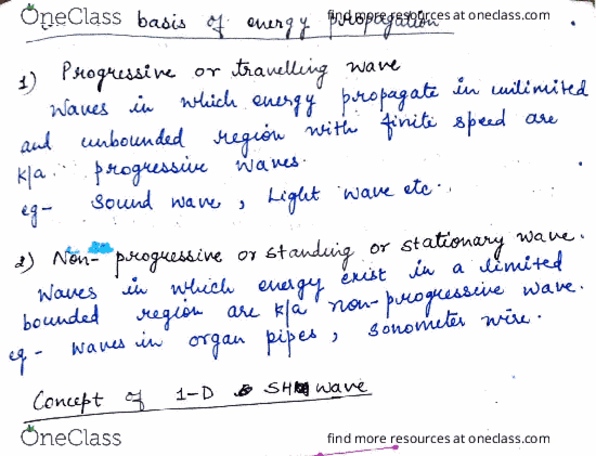 OneClass
find more resources at oneclass.com
basis of energy propegation
1) Progressive or travelling wave
Waves in which energy propagate in unlimited
and unbounded region with finite speed are
k/a progressive waves.
eg- Sound wave, Light wave etc.
2) Non-progressive or standing or stationary wave.
Waves in which energy exist in a limited
bounded region are k/a non-progressive wave.
eg- waves in organ pipes, sonometer wire.
Concept of 1-D SHM wave
OneClass
find more resources at oneclass.com